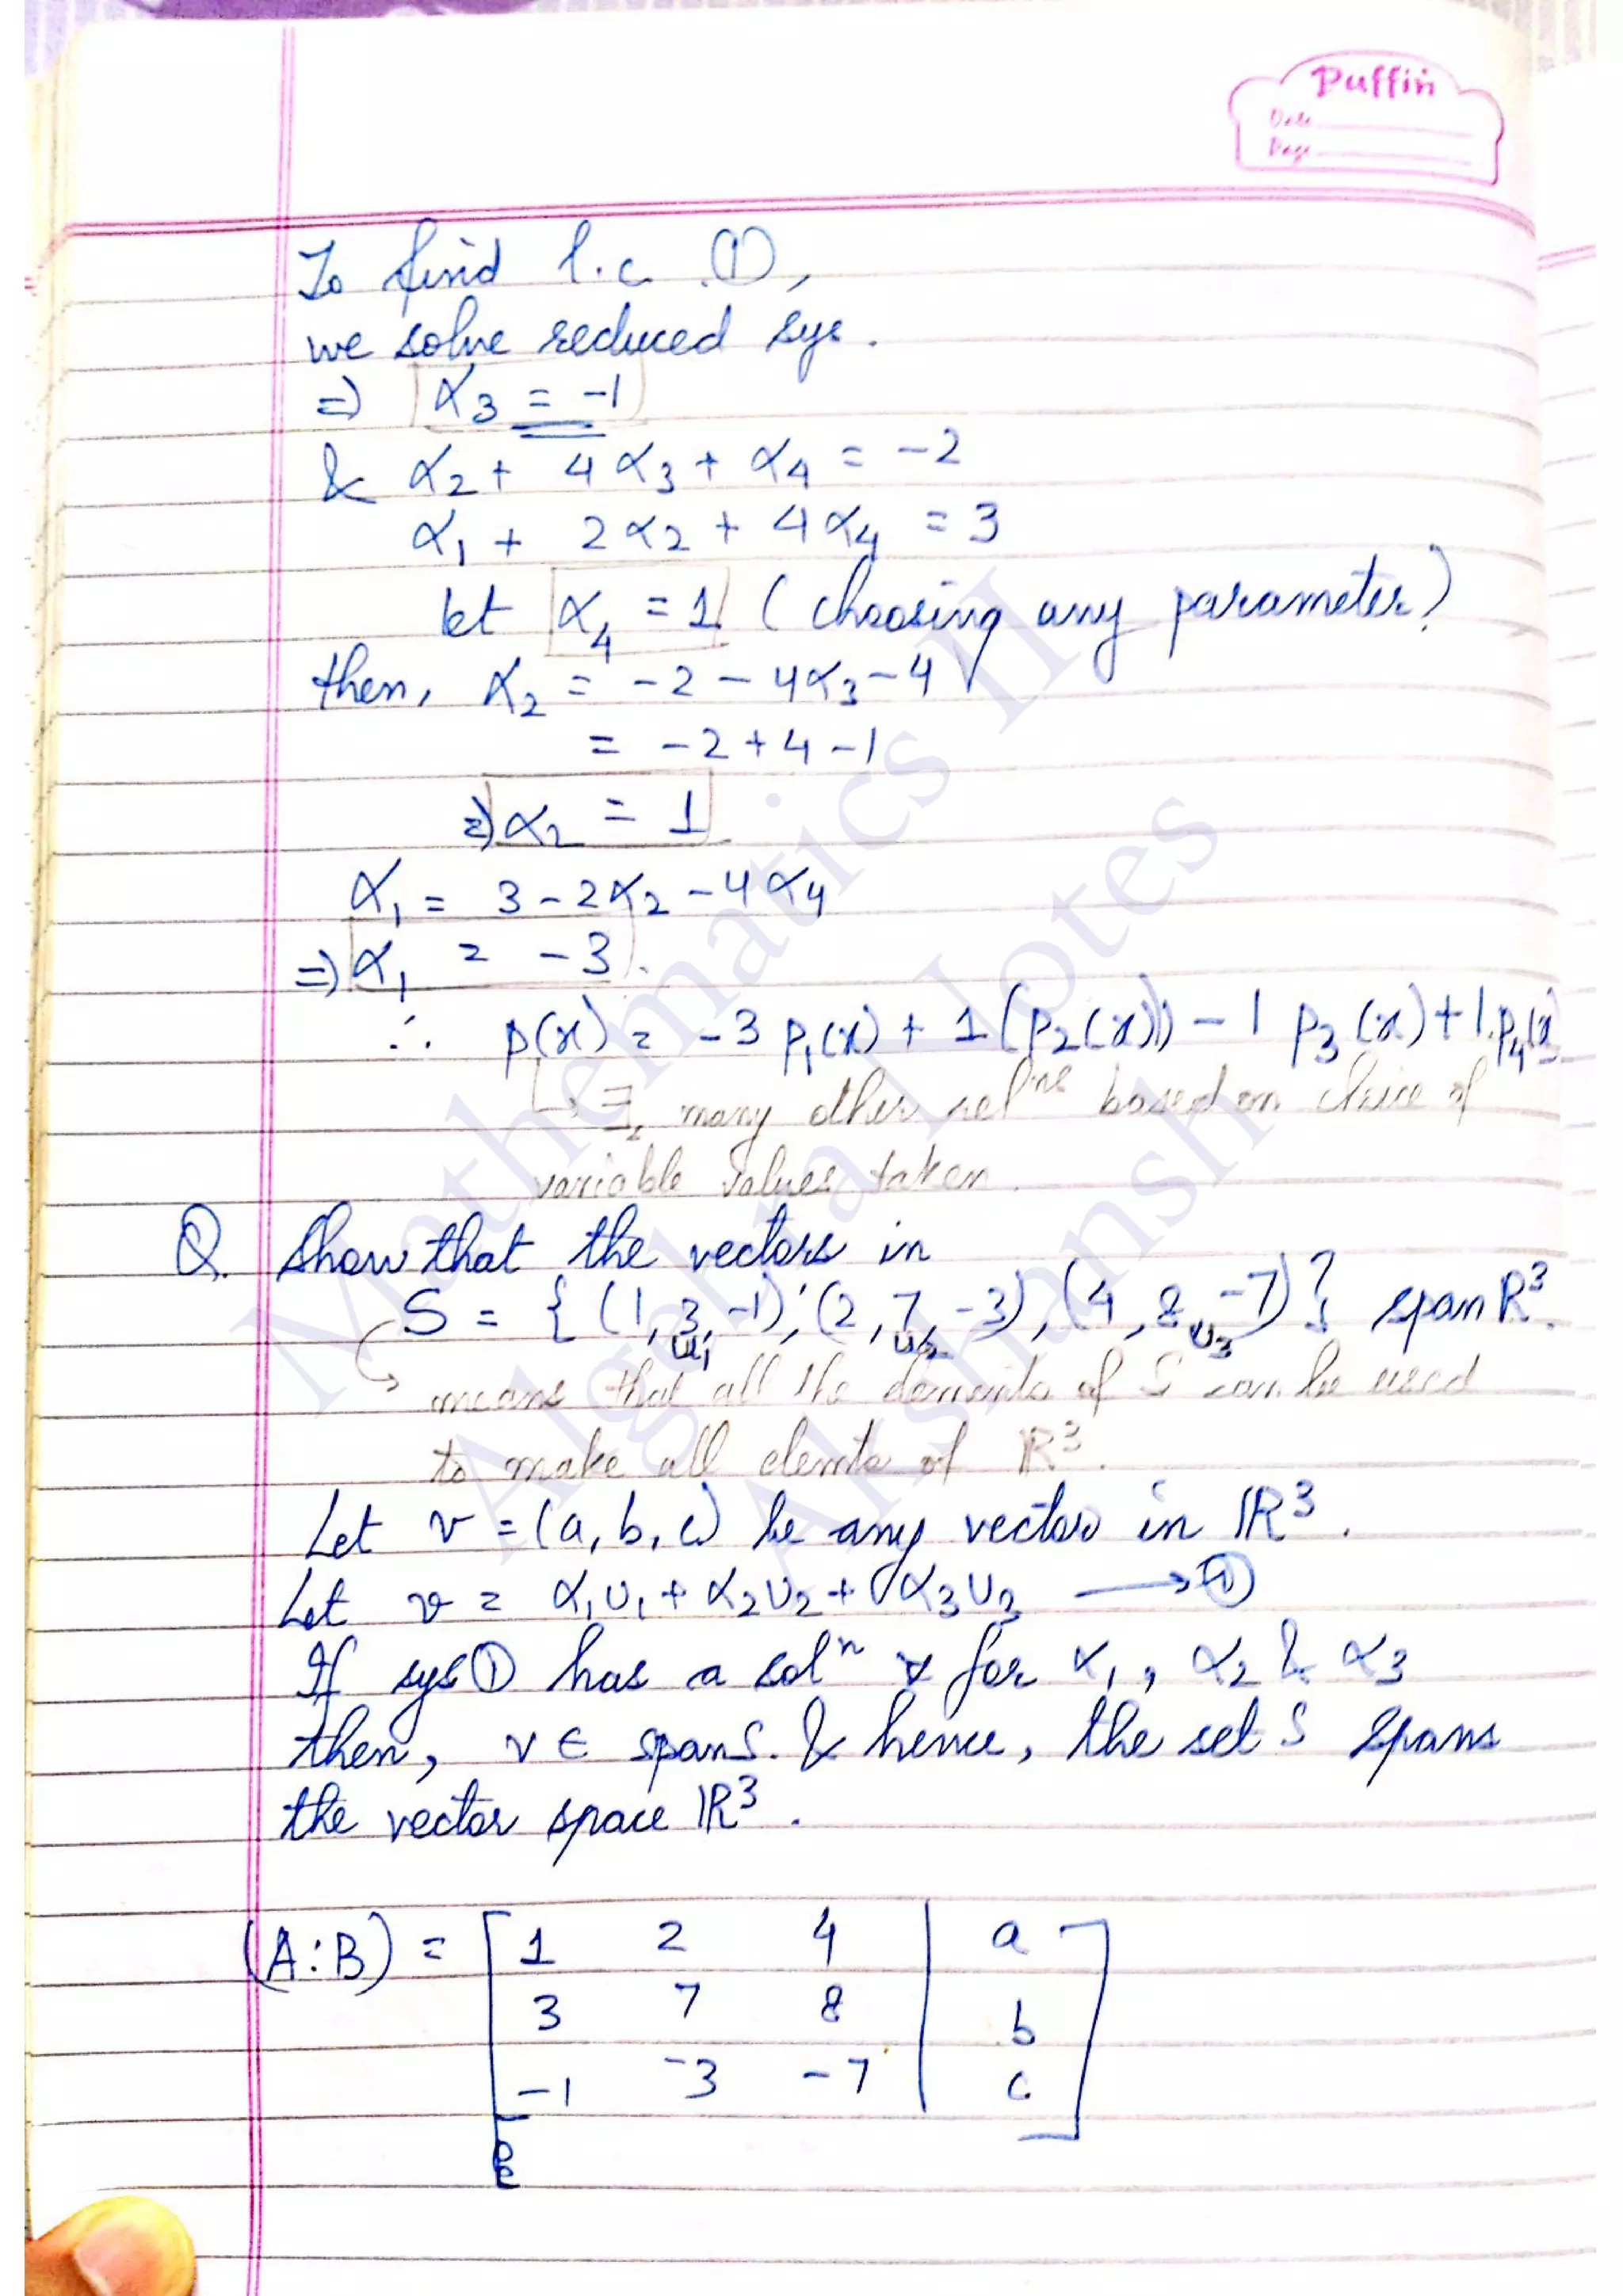 Puffin
Date
Page
To find l.c. ①,
we solve reduced sys.
=) α₃ = -1
& α₂ + 4α₃ + α₄ = -2
α₁ + 2α₂ + 4α₄ = 3
let α₄ = 1 (choosing any parameter)
then, α₂ = -2 - 4α₃ - 4
= -2 + 4 - 1
=) α₂ = 1
α₁ = 3 - 2α₂ - 4α₄
=) α₁ = -3.
∴ p(x) = -3 p₁(x) + 1(p₂(x)) - 1 p₃(x) + 1.p₄(x)
↳ ∃, many other solⁿˢ based on choice of
variable values taken.
Q. Show that the vectors in
S = { (1, 3, -1), (2, 7, -3), (4, 8, -7) } span ℝ³.
u₁ u₂ u₃
means that all the elements of S can be used
to make all elemts of ℝ³.
Let v = (a, b, c) be any vector in ℝ³.
Let v = α₁u₁ + α₂u₂ + α₃u₃ → ①
If sys ① has a solⁿ for α₁, α₂ & α₃
then, v ∈ span S. & hence, the set S spans
the vector space ℝ³.
(A:B) = [ 1 2 4 | a ]
3 7 8 | b
-1 -3 -7 | c
Mathematics II
Algebra Notes
Akshansh